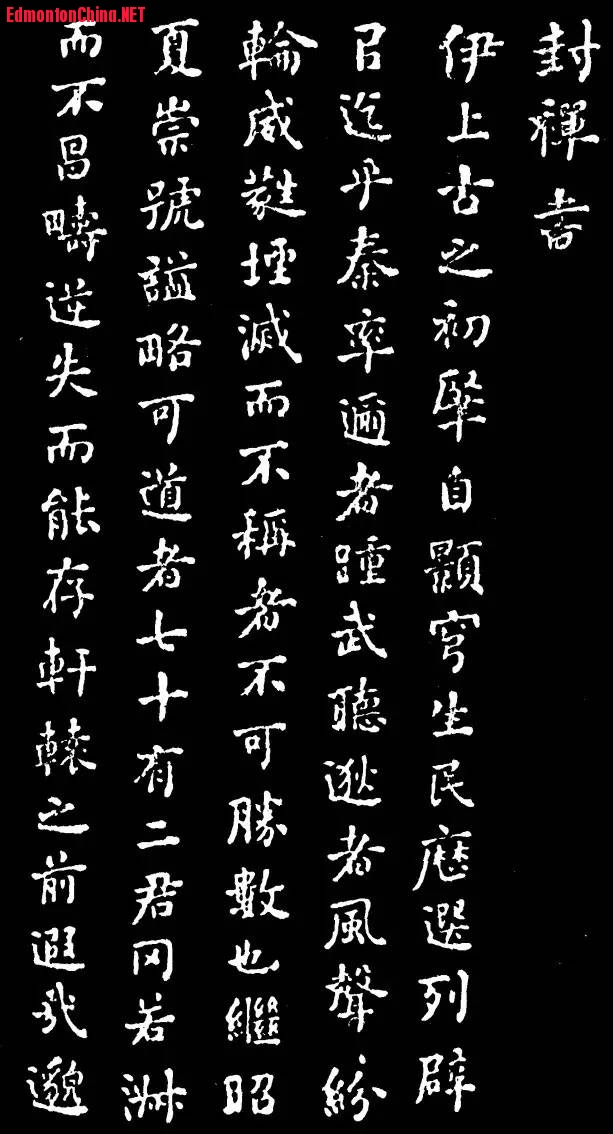 EdmontonChina.NET
封禪書
伊上古之初肇自顥穹生民歷選列辟
㠯迄乎秦率邇者踵武聽逖者風聲紛
輪威蕤堙滅而不稱者不可勝數也繼昭
夏崇號謚略可道者七十有二君罔若淋
而不昌疇逆失而能存軒轅之前遐哉邈